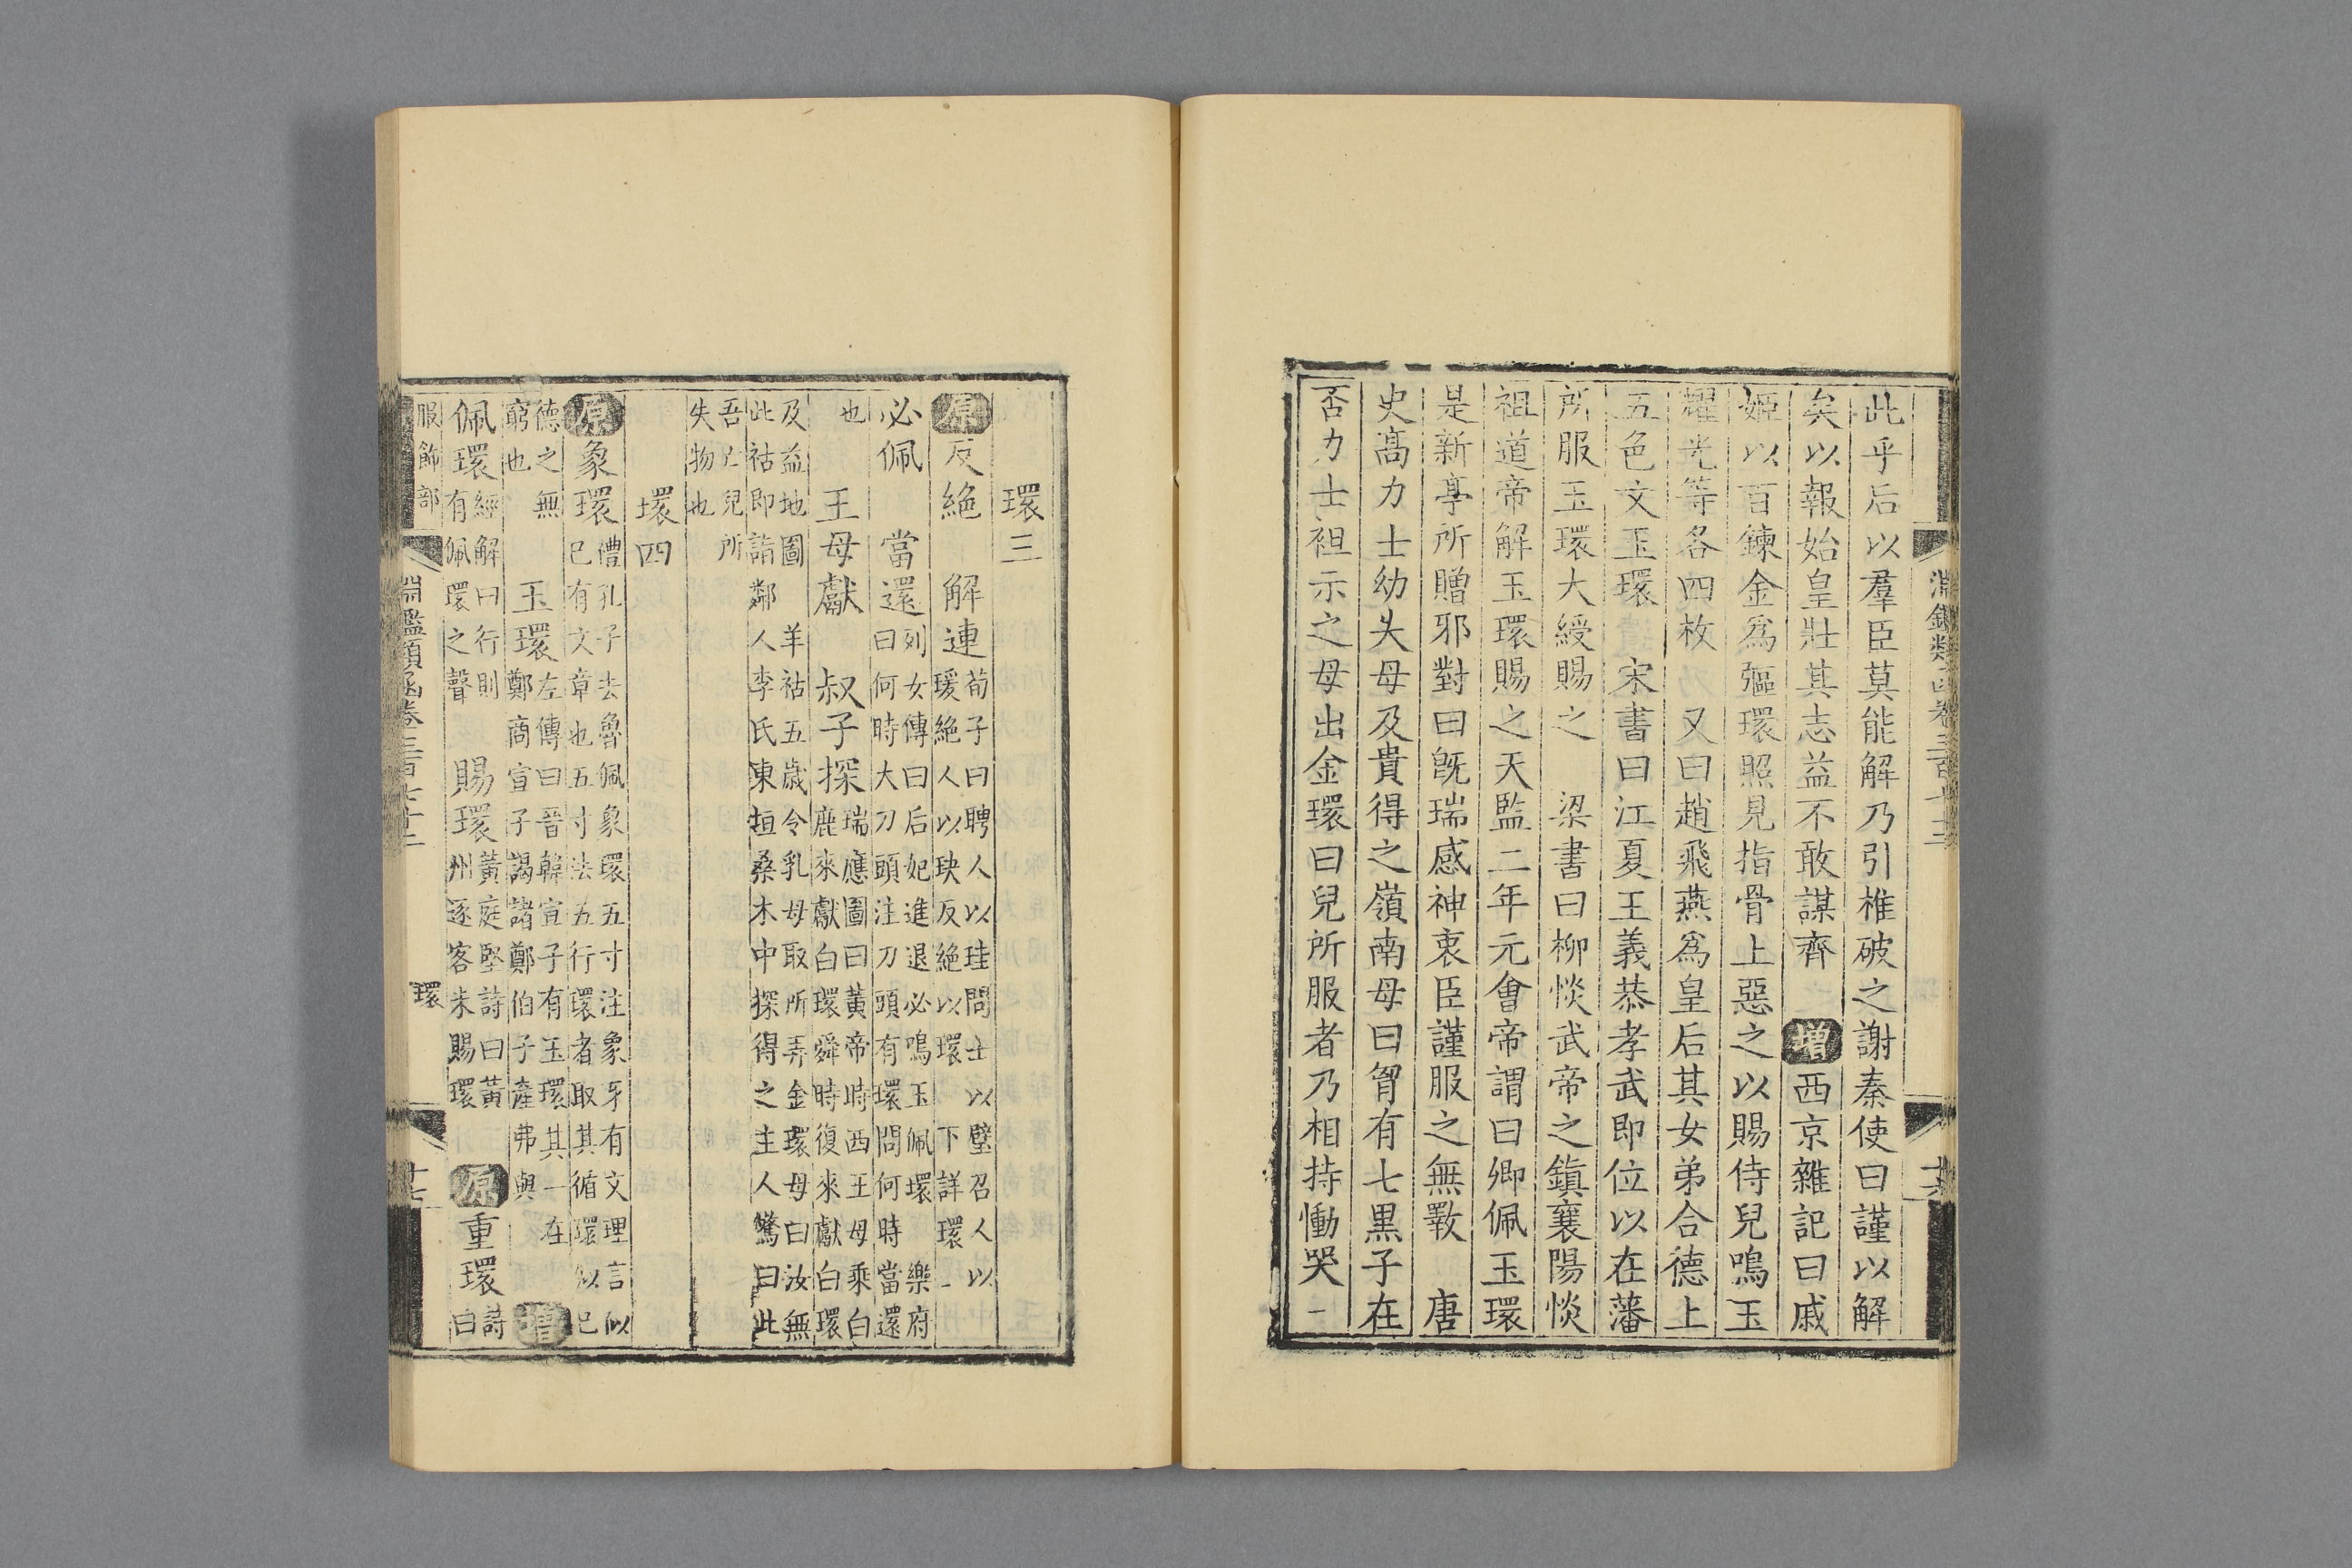 此乎后以羣臣莫能解乃引椎破之謝秦使曰謹以解
矣以報始皇壯其志益不敢謀齊 增西京雜記曰戚
姬以百鍊金爲彄環照見指骨上惡之以賜侍兒鳴玉
耀光等各四枚 又曰趙飛燕爲皇后其女弟合德上
五色文玉環 宋書曰江夏王義恭孝武即位以在藩
所服玉環大綬賜之 梁書曰柳惔武帝之鎮襄陽惔
祖道帝解玉環賜之天監二年元會帝謂曰卿佩玉環
是新亭所贈邪對曰旣瑞感神衷臣謹服之無斁 唐
史高力士幼失母及貴得之嶺南母曰胷有七黒子在
否力士袒示之母出金環曰兒所服者乃相持慟哭
環三
原反絶 解連荀子曰聘人以珪問士以璧召人以
瑗絶人以玦反絶以環 下詳環一
必佩 當還列女傳曰后妃進退必鳴玉佩環 樂府
曰何時大刀頭注刀頭有環問何時當還
也 王母獻 叔子探瑞應圖曰黃帝時西王母乘白
鹿來獻白環舜時復來獻白環
及益地圖 羊祜五歲令乳母取所弄金環母曰汝無
此祜即詣鄰人李氏東垣桑木中探得之主人驚曰此
吾亡兒所
失物也
環四
原象環禮孔子去魯佩象環五寸注象牙有文理言似
已有文章也五寸法五行環者取其循環似已
德之無
窮也 玉環左傳曰晉韓宣子有玉環其一在
鄭商宣子謁諸鄭伯子產弗與 增
佩環經解曰行則
有佩環之聲 賜環黃庭堅詩曰黃
州逐客未賜環 原重環詩
曰
服飾部 淵鑑類函卷三百七十二 環 十七